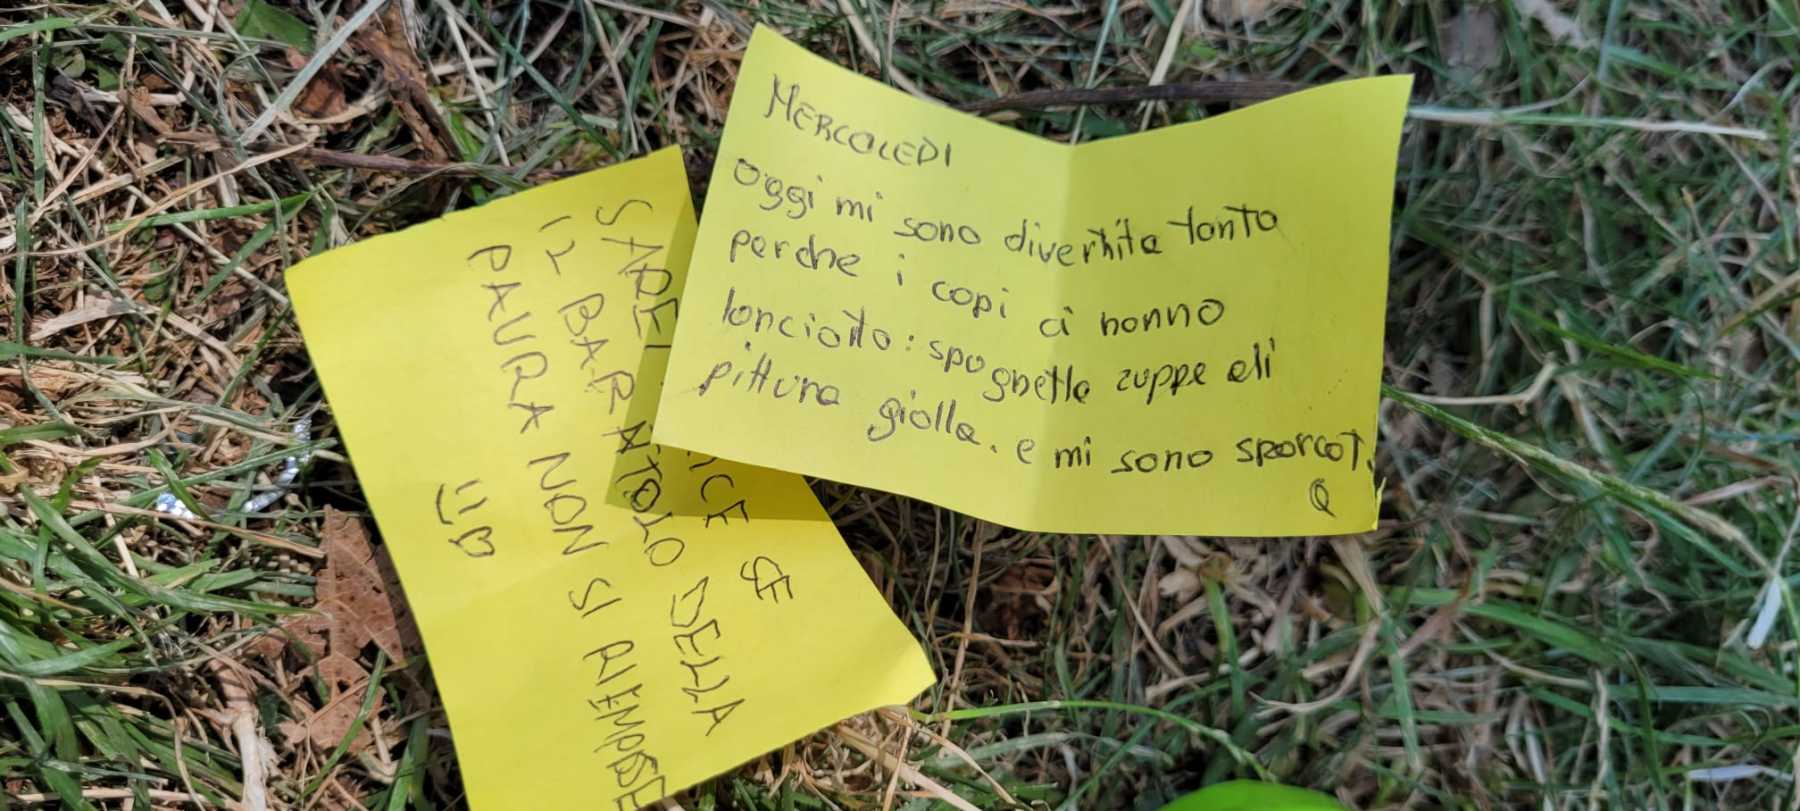 MERCOLEDI
oggi mi sono divertita tanto
perche i capi ci hanno
lanciato: spugnette zuppe di
pittura gialla. e mi sono sporcat
SAREI ICE SE
12 BARATOLO DELLA
PAURA NON SI RIEMPISSE